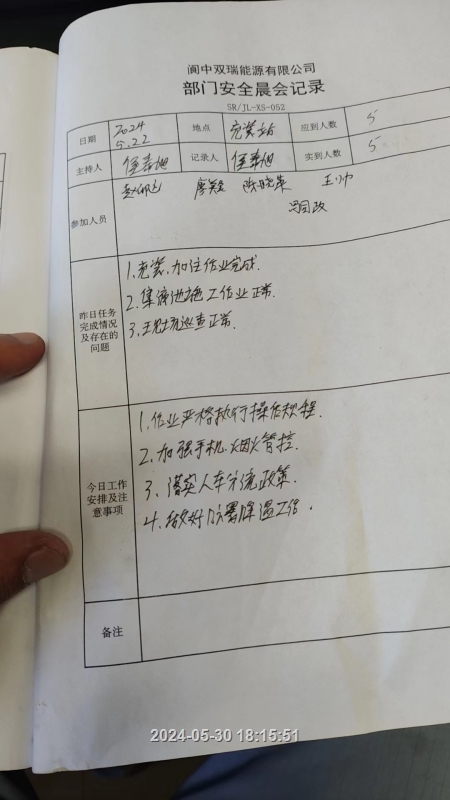 阆中双瑞能源有限公司
部门安全晨会记录
SR/JL-XS-052
日期 2024 5.22 地点 充装站 应到人数 5
主持人 记录人 实到人数 5
参加人员 王帅
昨日任务完成情况及存在的问题
1、充装、加注作业完成.
2、集液池施工作业正常.
3、现场巡查正常.
今日工作安排及注意事项
1、作业严格执行操作规程.
2、加强手机、烟火管控.
3、落实人车分流政策.
4、做好防暑降温工作.
备注
2024-05-30 18:15:51